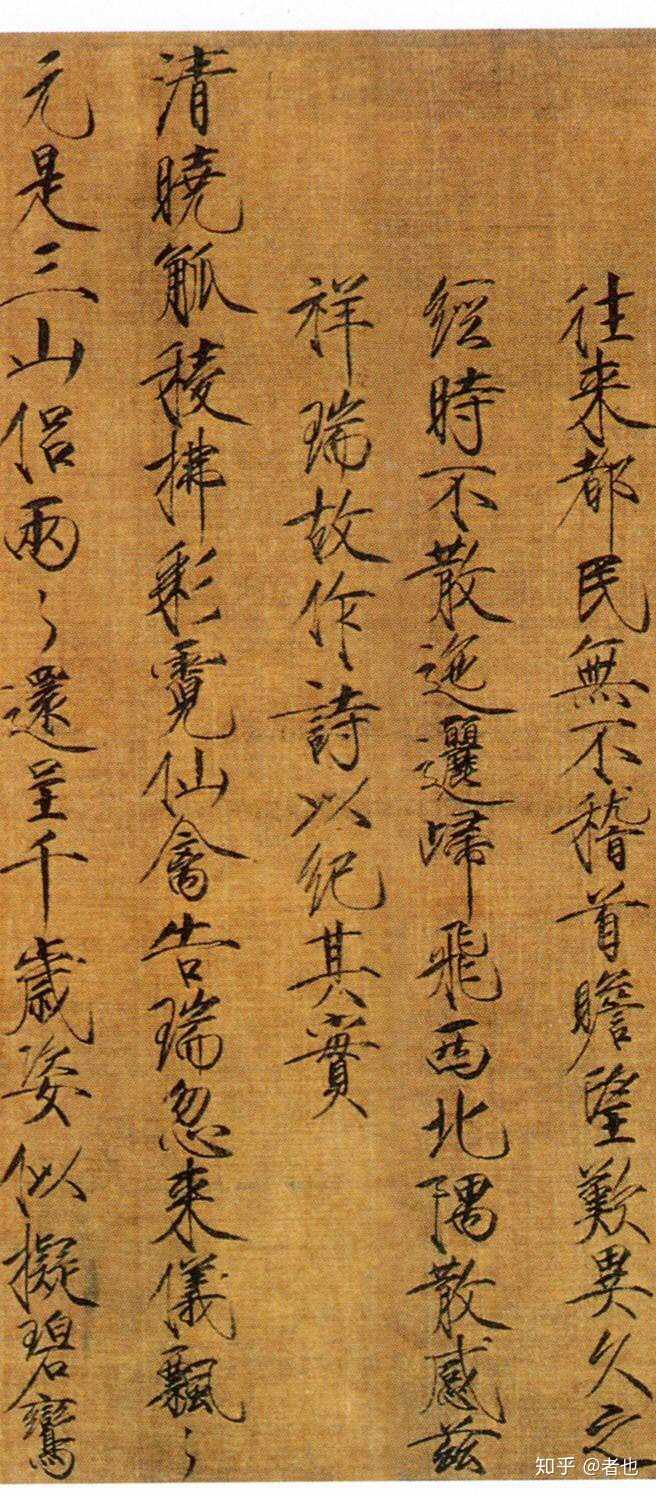 往来都民無不稽首瞻望歎異久之
經時不散迤邐歸飛西北隅散感茲
祥瑞故作詩以紀其實
清曉觚稜拂彩霓仙禽告瑞忽来儀飄〻
元是三山侶兩〻還呈千歲姿似擬碧鸞
知乎 @者也